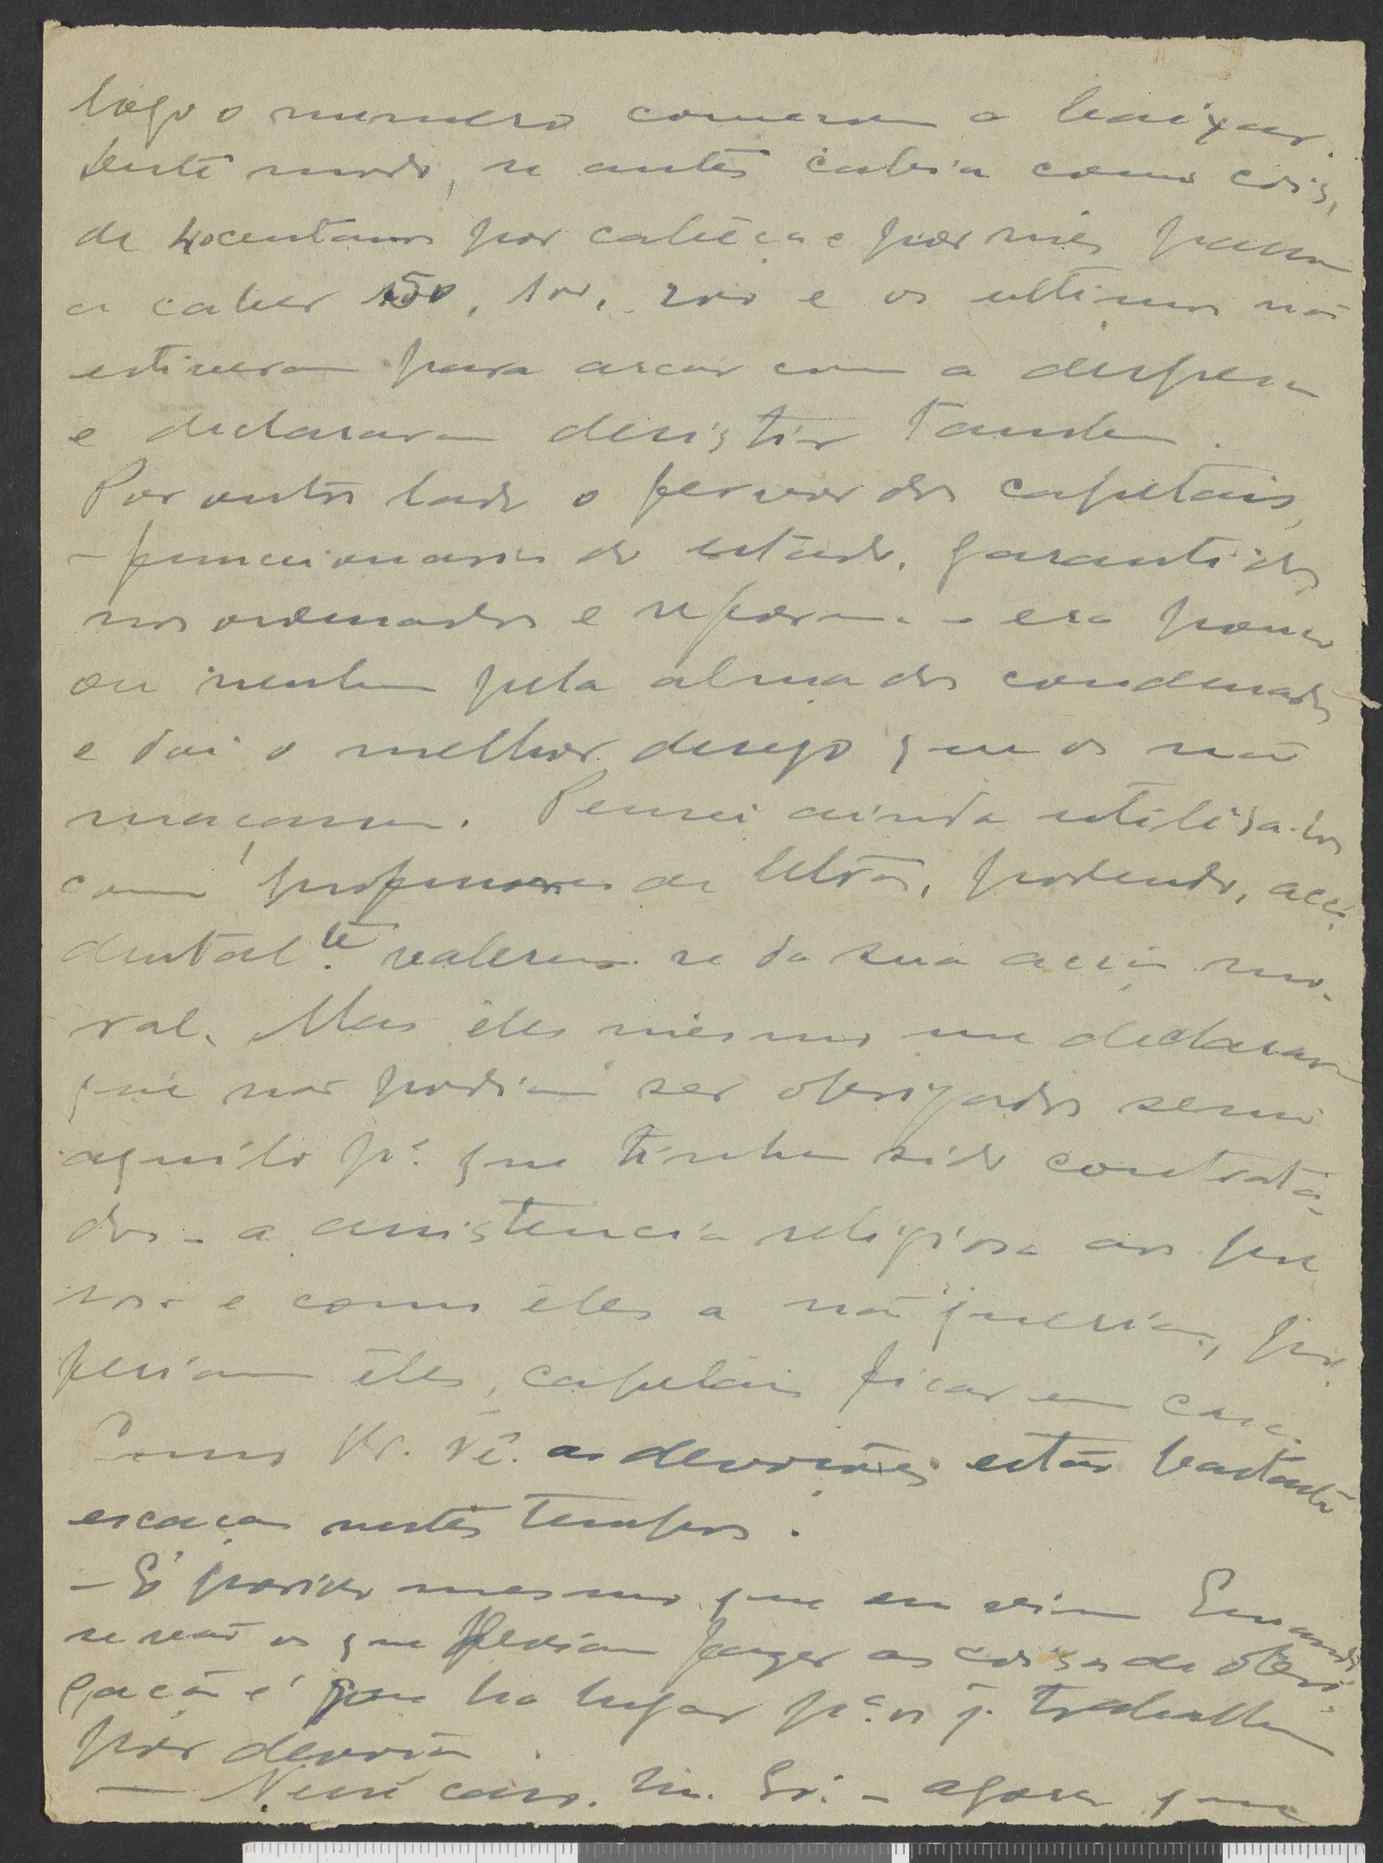 logo o numero começou a baixar.
Deste modo, se antes cabia como coisa
de 40 centavos por cabeça e por mês passou
a caber 150, 100, 200 e os ultimos não
estiveram para arcar com a despesa
e declararam desistir tambem.
Por outro lado o fervor dos capelais,
– funcionarios do estado, garantidos
nos ordenados e reforma – era pouco
ou nenhum pela alma dos condenados
e daí o melhor desejo que os não
maçassem. Pensei ainda utilisa-los
como professores de letras, podendo, aci-
dental.te valerem-se da sua acção mo-
ral. Mas êles mesmo me declararam
que não podiam ser obrigados senão
aquilo p.ª que tinham sido contrata-
dos – a assistencia religiosa aos pre-
sos e como êles a não queriam, pre-
feriam êles, capelais ficar em casa.
Como V. vê. as devoções estão bastante
escaças nestes tempos.
– É por isso mesmo que eu vim Enquanto
se não os que deviam fazer as coisas de obri-
gação é que ha lugar p.ª os q. trabalham
por devoção.
– Nesse caso. m. Sr.ª – agora que